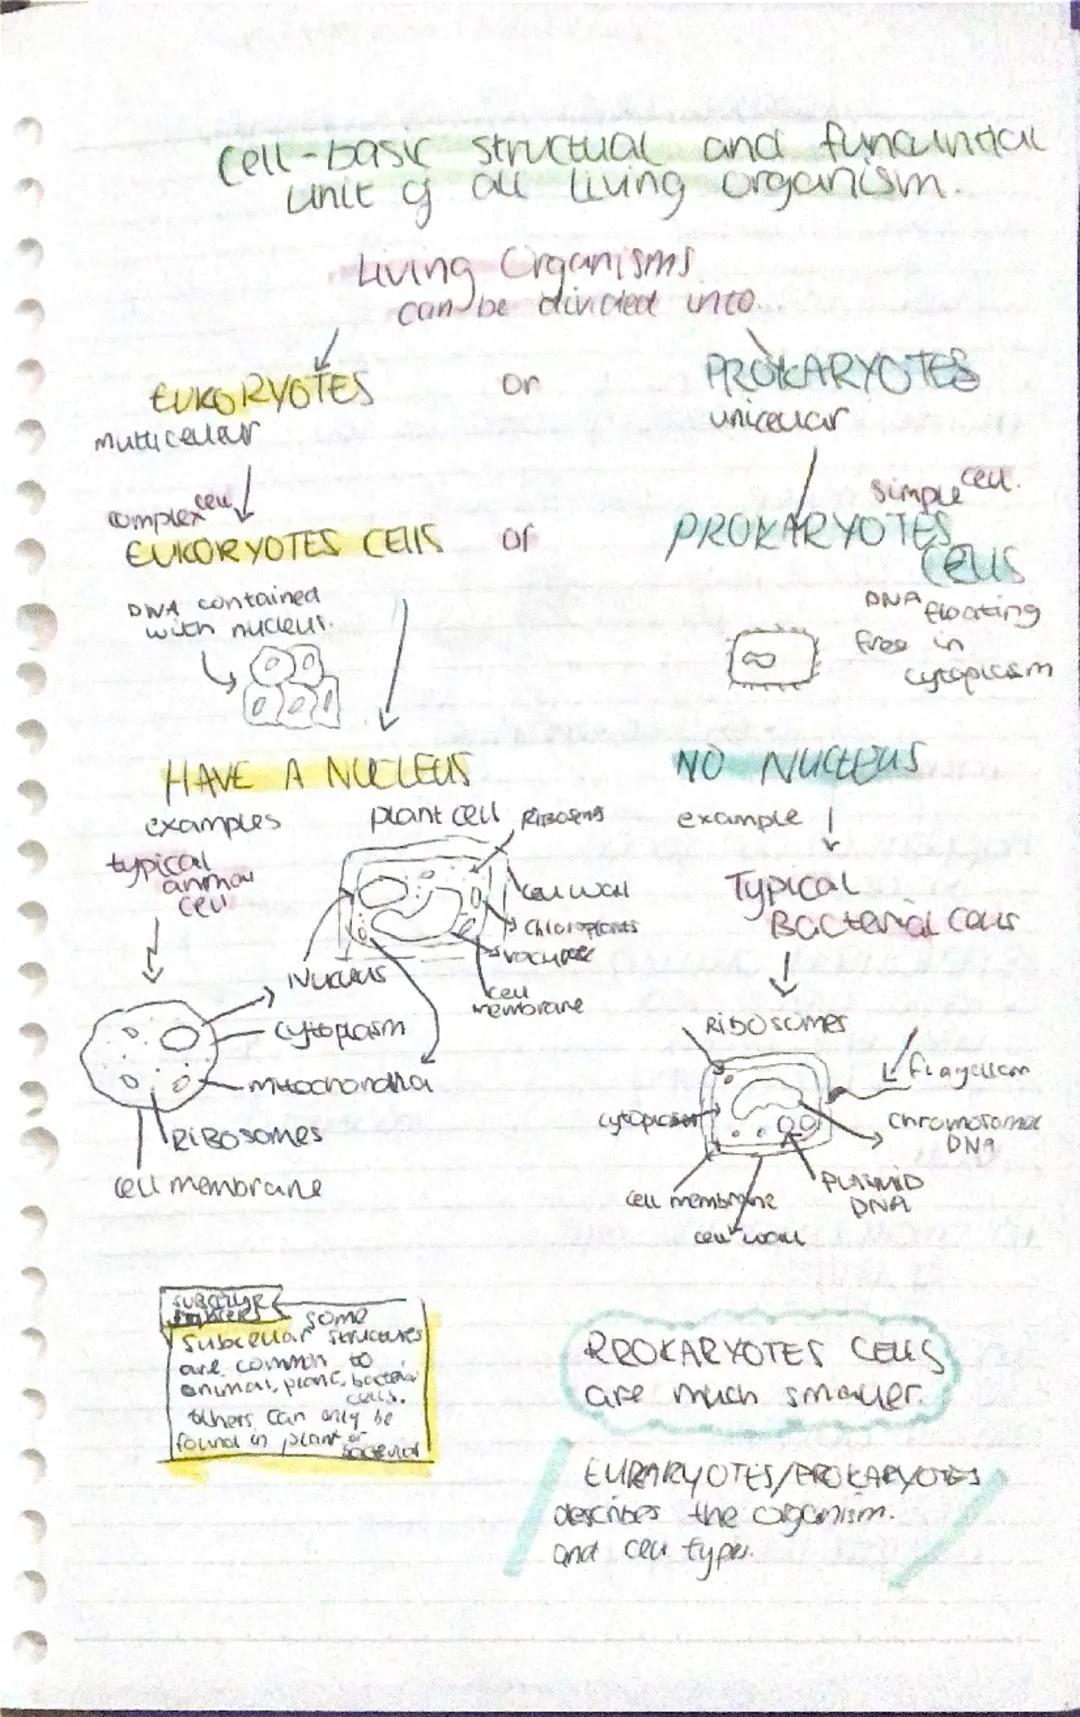 Cell-basic structual and funcuntial
unit of all living organism.
Living Organisms
can be divided into...
EUKORYOTES or PROKARYOTES
multicellular unicellular
complex cell simple cell.
EUKORYOTES CEllS or PROKARYOTES
cells
DNA contained
with nucleus.
DNA floating
free in
cytoplasm
HAVE A NUCLEUS NO NUCLEUS
examples plant cell RIBOSOMES example
typical
animal
cell
cell wall
Chloroplasts
vacuole
cell
membrane
Typical
Bacterial Cells
Nucleus
cytoplasm
mitochondria
RIBOSOMES
cell membrane
RIBOSOMES
flagellem
cytoplasm
chromosomal
DNA
PLASMID
DNA
cell membrane
cell wall
SUBCELLULAR
some
subcellular structures
are common to
animal, plant, bacterial
cells.
others can only be
found in plant or
bacterial
PROKARYOTES CELLS
are much smaller.
EUKARYOTES/PROKARYOTES
describes the organism.
and cell types.